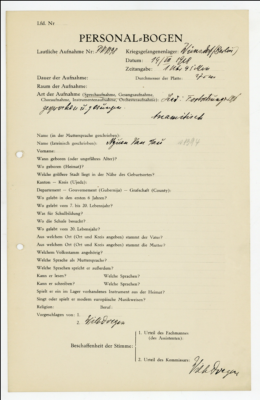 Lfd. Nr.
PERSONAL-BOGEN
Lautliche Aufnahme Nr.: Kriegsgefangenenlager:
Datum:
Zeitangabe:
Dauer der Aufnahme: Durchmesser der Platte:
Raum der Aufnahme:
Art der Aufnahme (Sprechaufnahme, Gesangsaufnahme,
Choraufnahme, Instrumentenaufnahme, Orchesteraufnahme): Lied:
gesprochen u. gesungen
Anamitisch
Name (in der Muttersprache geschrieben):
Name (lateinisch geschrieben):
Vorname:
Wann geboren (oder ungefähres Alter)?
Wo geboren (Heimat)?
Welche größere Stadt liegt in der Nähe des Geburtsortes?
Kanton – Kreis (Ujedz):
Department – Gouvernement (Gubernija) – Grafschaft (County):
Wo gelebt in den ersten 6 Jahren?
Wo gelebt vom 7. bis 20. Lebensjahr?
Was für Schulbildung?
Wo die Schule besucht?
Wo gelebt vom 20. Lebensjahr?
Aus welchem Ort (Ort und Kreis angeben) stammt der Vater?
Aus welchem Ort (Ort und Kreis angeben) stammt die Mutter?
Welchem Volksstamm angehörig?
Welche Sprache als Muttersprache?
Welche Sprachen spricht er außerdem?
Kann er lesen? Welche Sprachen?
Kann er schreiben? Welche Sprachen?
Spielt er ein im Lager vorhandenes Instrument aus der Heimat?
Singt oder spielt er modern europäische Musikweisen?
Religion: Beruf:
Vorgeschlagen von: 1.
2.
Beschaffenheit der Stimme:
1. Urteil des Fachmannes:
(des Assistenten):
2. Urteil des Kommissars: